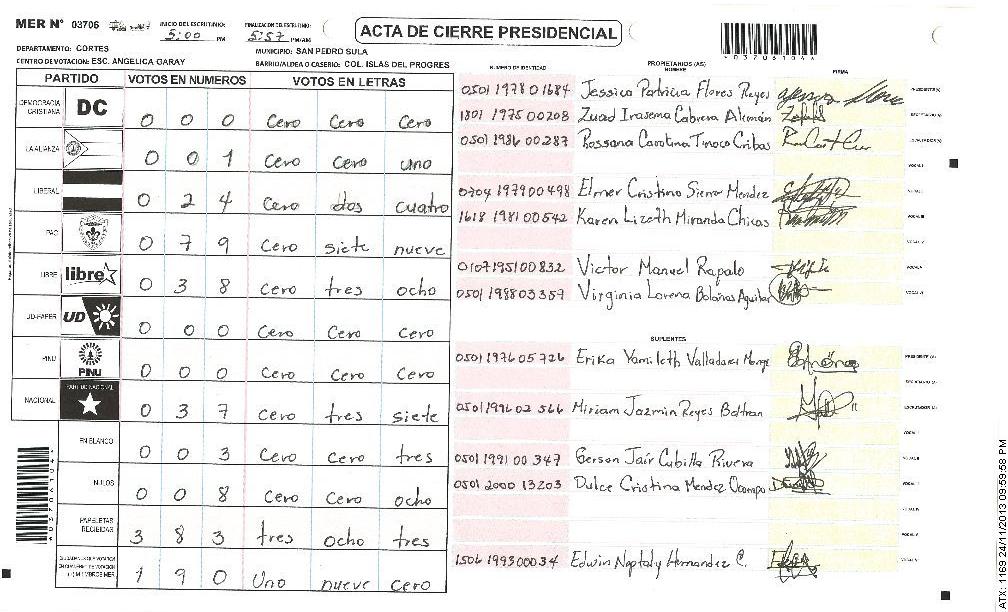 MER N° 03706
INICIO DEL ESCRUTINIO: 5:00 PM
FINALIZACION DEL ESCRUTINIO: 5:57 PM/AM
ACTA DE CIERRE PRESIDENCIAL
DEPARTAMENTO: CORTES
MUNICIPIO: SAN PEDRO SULA
CENTRO DE VOTACION: ESC. ANGELICA GARAY
BARRIO/ALDEA O CASERIO: COL. ISLAS DEL PROGRES
PARTIDO VOTOS EN NUMEROS VOTOS EN LETRAS
DEMOCRACIA CRISTIANA DC 0 0 0 Cero Cero Cero
LA ALIANZA 0 0 1 Cero Cero uno
LIBERAL 0 2 4 Cero dos cuatro
PAC 0 7 9 Cero siete nueve
LIBRE libre 0 3 8 Cero tres ocho
UD-FAPER UD 0 0 0 Cero Cero Cero
PINU PINU 0 0 0 Cero Cero Cero
NACIONAL PARTIDO NACIONAL 0 3 7 Cero tres siete
EN BLANCO 0 0 3 Cero Cero tres
NULOS 0 0 8 Cero Cero ocho
PAPELETAS RECIBIDAS 3 8 3 tres ocho tres
1 9 0 Uno nueve cero
NUMERO DE IDENTIDAD PROPIETARIOS (AS) NOMBRE FIRMA
0501 1978 01684 Jessica Patricia Flores Reyes PRESIDENTE(A)
1801 1975 00208 Zuad Irasema Cabrera Alemán SECRETARIO(A)
0501 1986 00287 Rossana Carolina Tinoco Cribas ESCRUTADOR(A)
VOCAL I
0704 1979 00498 Elmer Cristino Sierra Mendez VOCAL II
1618 1981 00542 Karen Lizeth Miranda Chicas VOCAL III
VOCAL IV
0107 1951 00832 Victor Manuel Rapalo VOCAL V
0501 1988 03357 Virginia Lorena Bolainos Aguilar VOCAL VI
SUPLENTES
0501 1976 05726 Erika Yamileth Valladares PRESIDENTE (A)
SECRETARIO (A)
0501 1996 02566 Miriam Jazmin Reyes Beltran ESCRUTADOR (A)
VOCAL I
0501 1991 00347 Gerson Jaír Cubilla Rivera VOCAL II
0501 2000 13203 Dulce Cristina Mendez Ocampo
VOCAL V
1506 1993 00034 Edwin Neptaly Hernandez C.
*03706104*
*03706104*
ATX: 1169 24/11/2013 09:59:58 PM